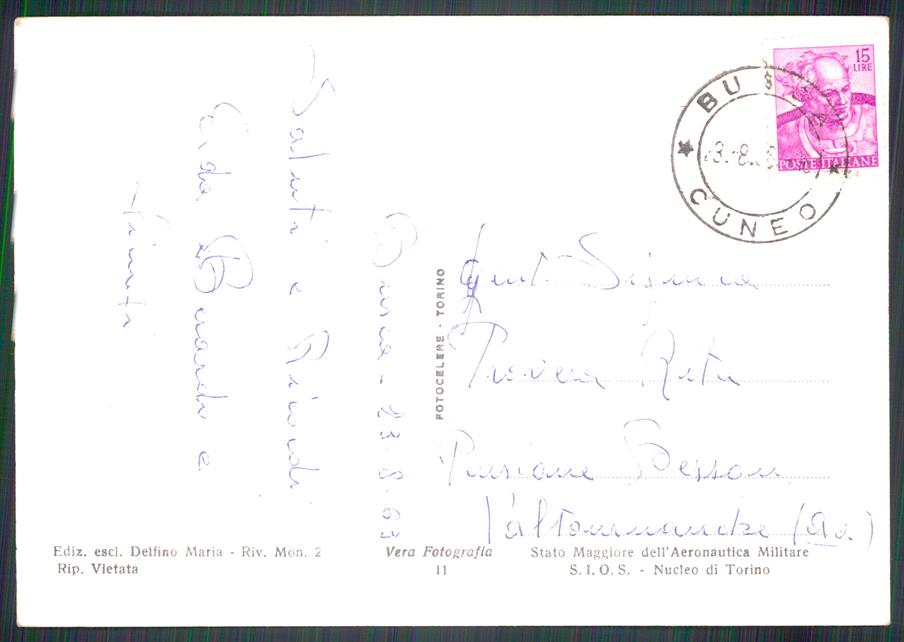 15
LIRE
POSTE ITALIANE
BUSCA
CUNEO
Busca - 23.8.63
Saluti e Ricordi
e
FOTOCELERE - TORINO
Gent. Signora
Rita
Pensione Besson
Valtournanche (Ao.)
Ediz. escl. Delfino Maria - Riv. Mon. 2
Rip. Vietata
Vera Fotografia
11
Stato Maggiore dell'Aeronautica Militare
S.I.O.S. - Nucleo di Torino